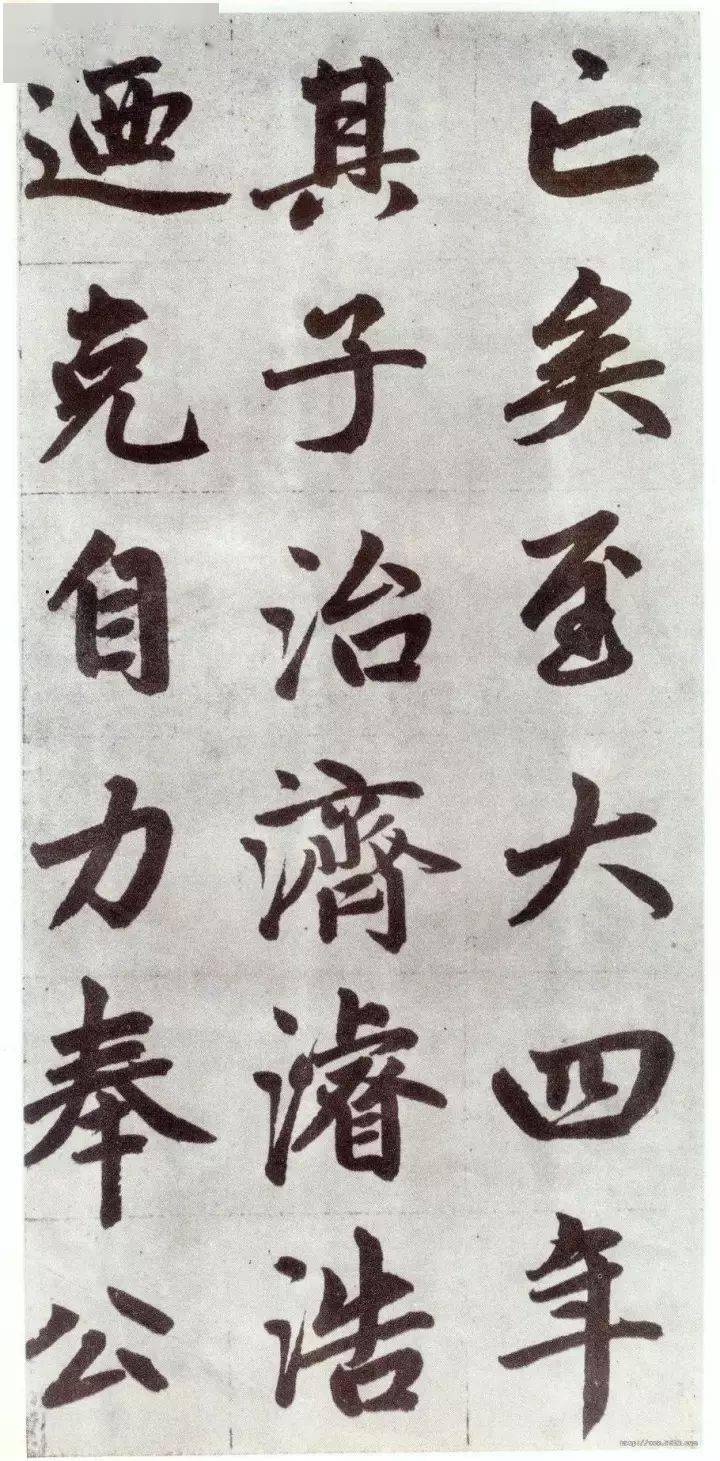 亡矣至大四年
其子治濟濬浩
迺克自力奉公